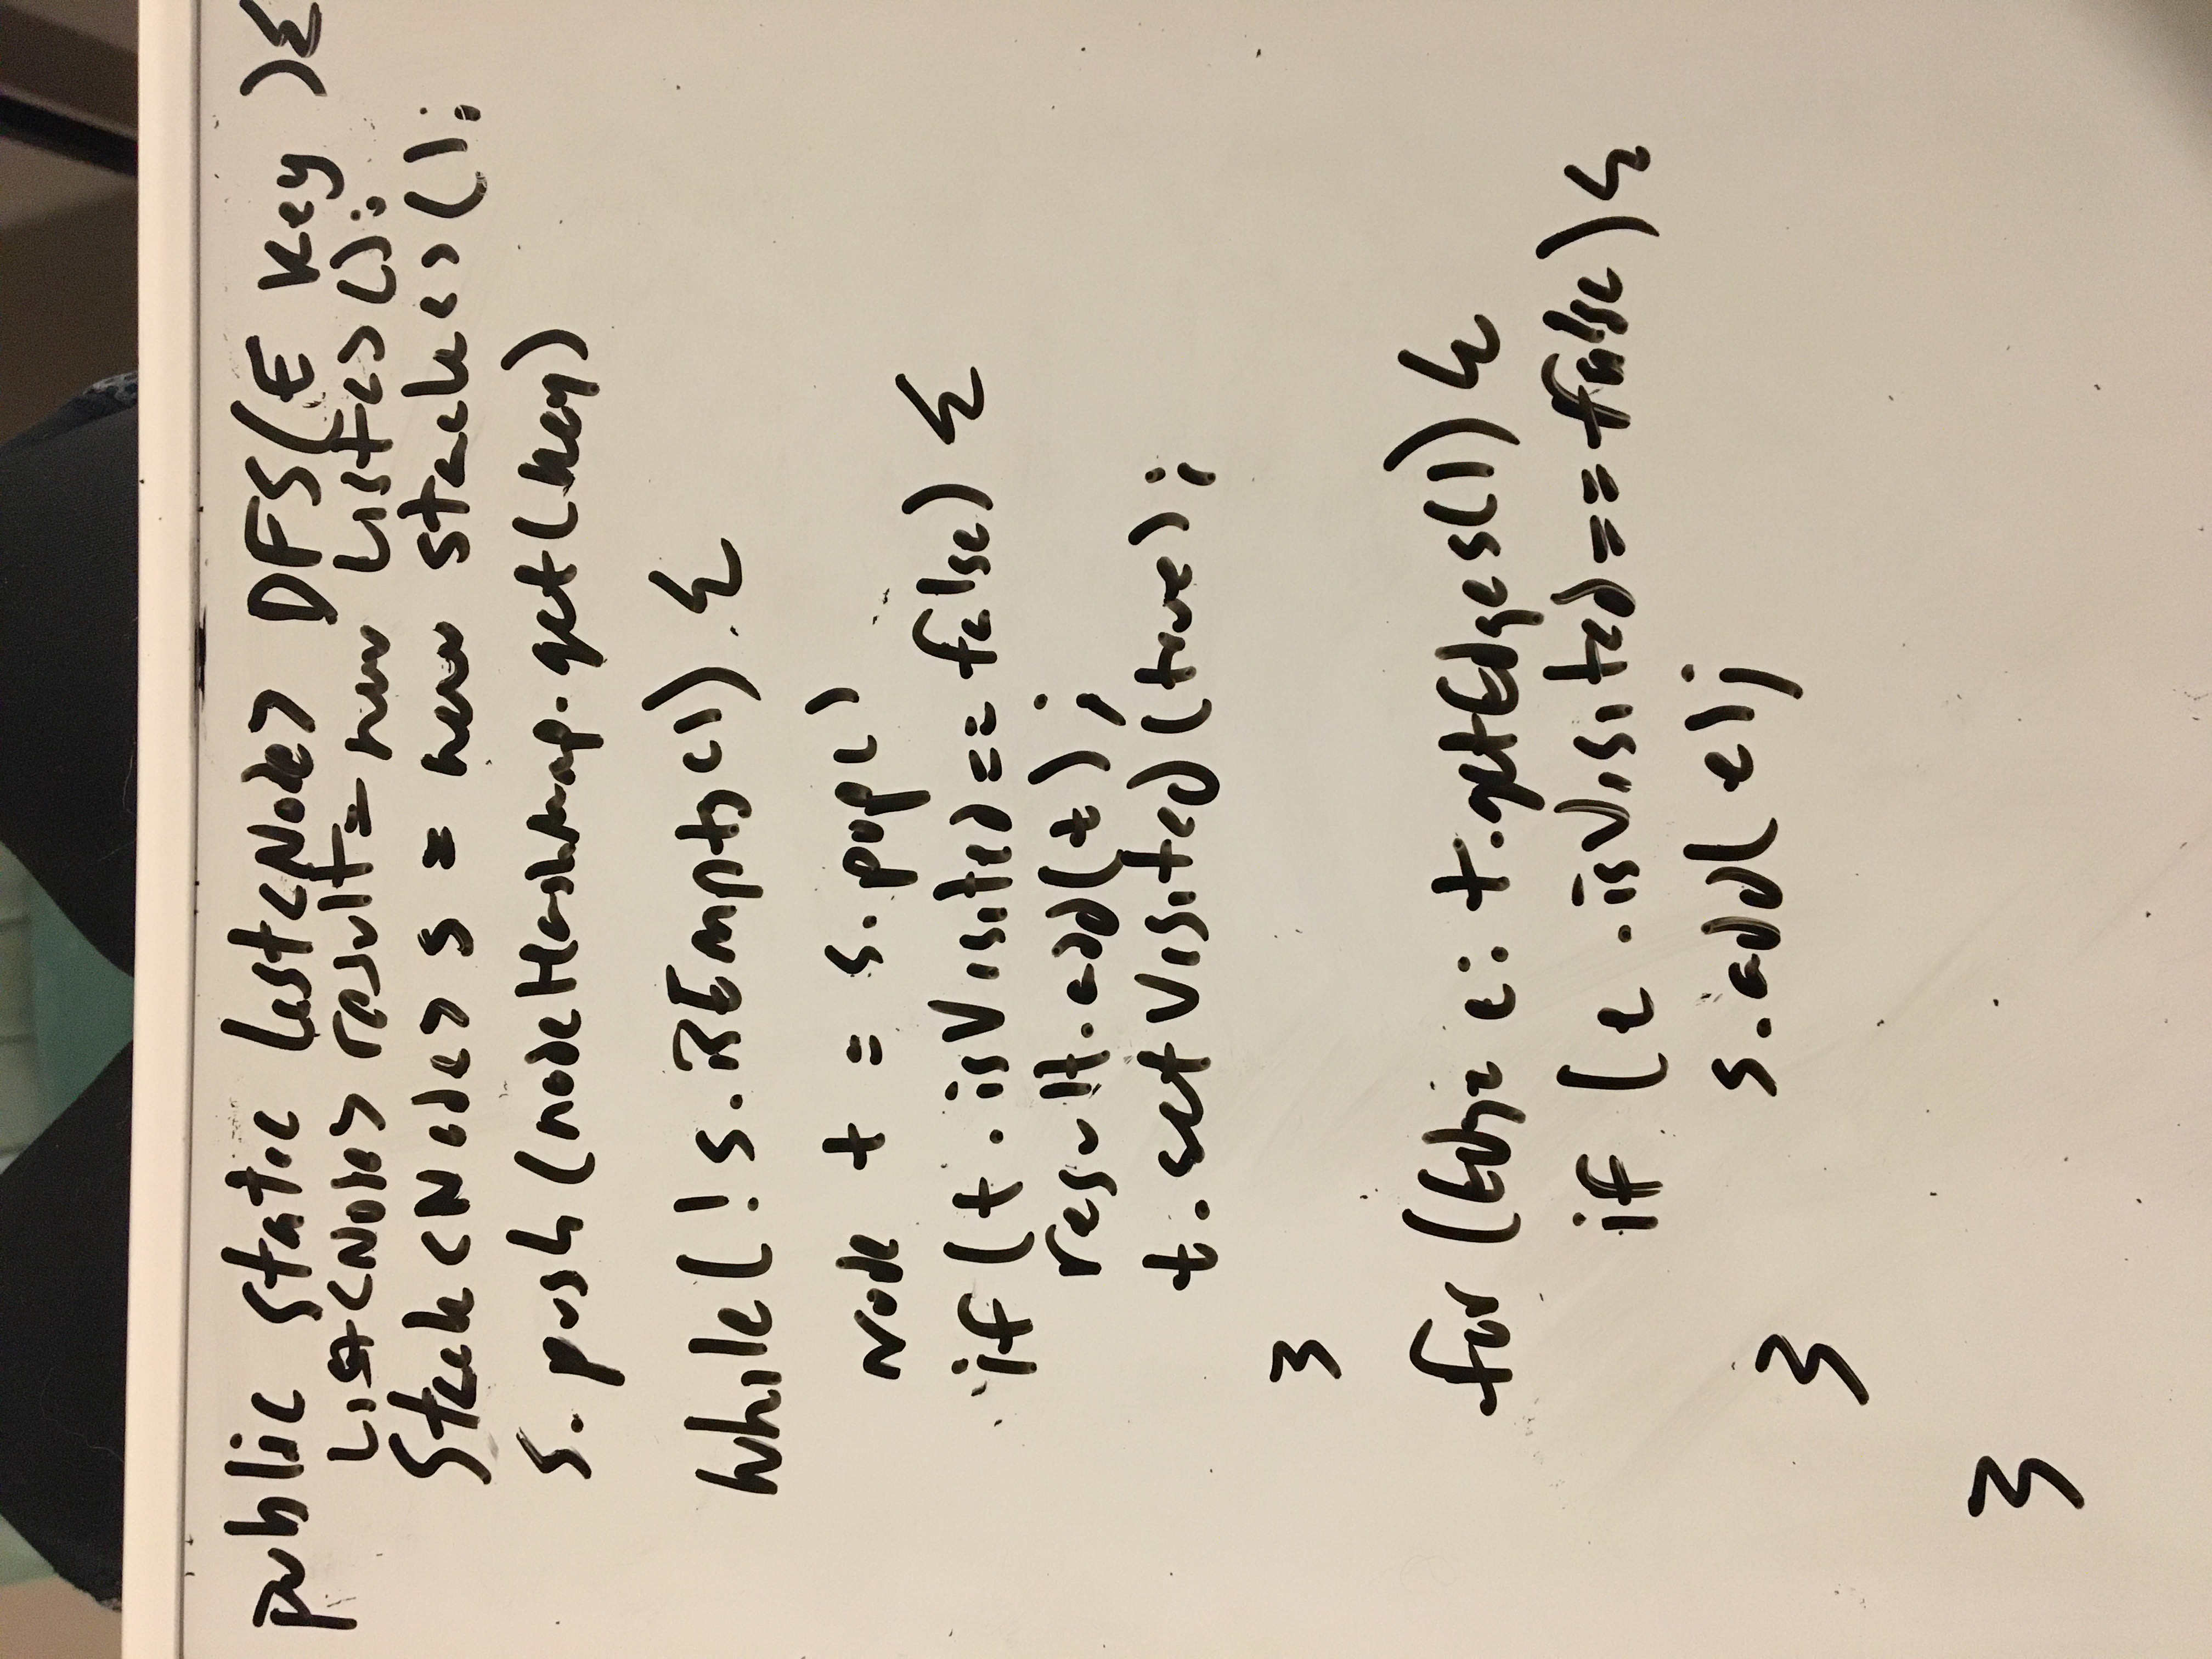 public static List<Node> DFS(E key ){
List<Node> result = new List<>();
Stack<Node> s = new stack<>();
s.push(nodeHashMap.get(key)
while(!s.isEmpty()) {
Node t = s.pop()
if (t.isVisited == false) {
result.add(t);
t.setVisited(true);
}
for (Edge e: t.getEdges()) {
if (e.isVisited == false) {
s.add(e);
}
}